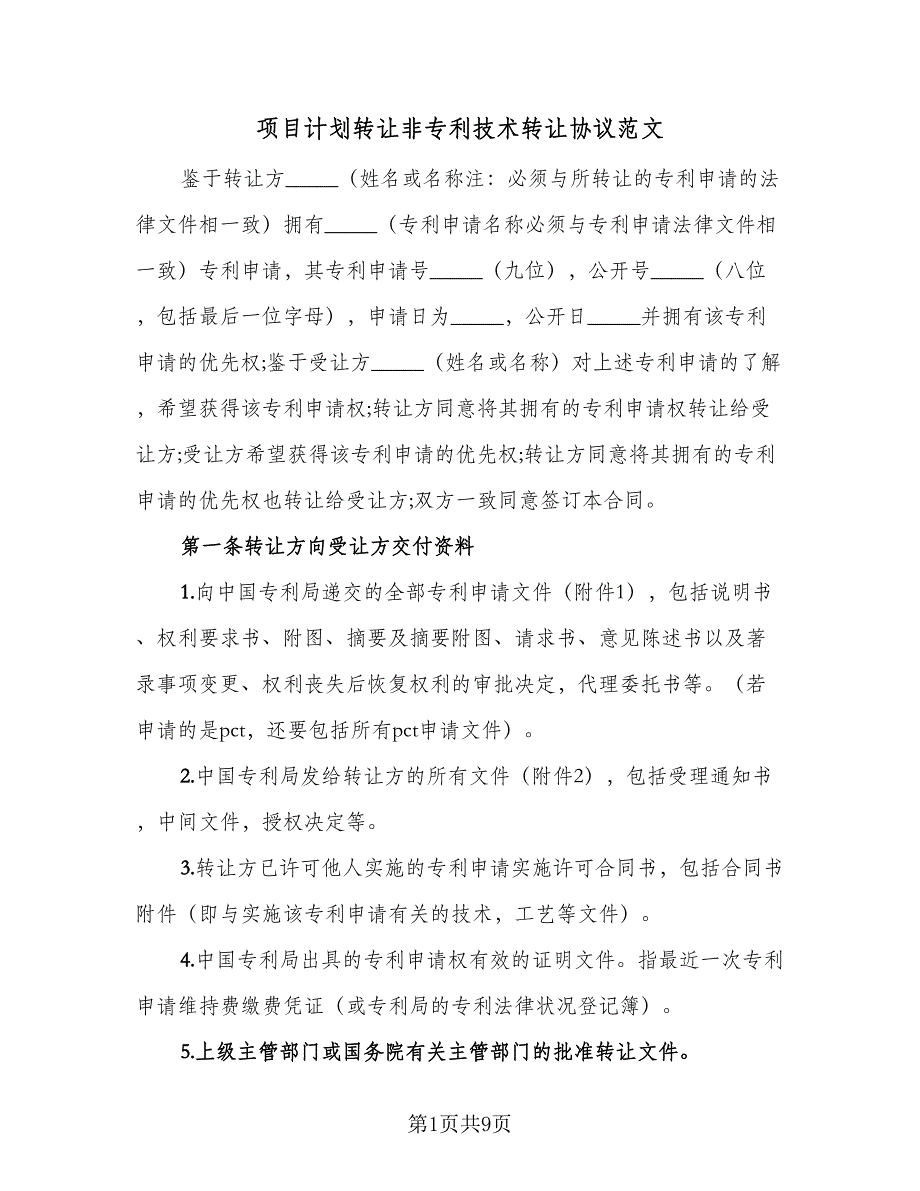 项目计划转让非专利技术转让协议范文
鉴于转让方_____（姓名或名称注：必须与所转让的专利申请的法
律文件相一致）拥有_____（专利申请名称必须与专利申请法律文件相
一致）专利申请，其专利申请号_____（九位），公开号_____（八位
，包括最后一位字母），申请日为_____，公开日_____并拥有该专利
申请的优先权;鉴于受让方_____（姓名或名称）对上述专利申请的了解
，希望获得该专利申请权;转让方同意将其拥有的专利申请权转让给受
让方;受让方希望获得该专利申请的优先权;转让方同意将其拥有的专利
申请的优先权也转让给受让方;双方一致同意签订本合同。
第一条转让方向受让方交付资料
1.向中国专利局递交的全部专利申请文件（附件1），包括说明书
、权利要求书、附图、摘要及摘要附图、请求书、意见陈述书以及著
录事项变更、权利丧失后恢复权利的审批决定，代理委托书等。（若
申请的是pct，还要包括所有pct申请文件）。
2.中国专利局发给转让方的所有文件（附件2），包括受理通知书
，中间文件，授权决定等。
3.转让方已许可他人实施的专利申请实施许可合同书，包括合同书
附件（即与实施该专利申请有关的技术，工艺等文件）。
4.中国专利局出具的专利申请权有效的证明文件。指最近一次专利
申请维持费缴费凭证（或专利局的专利法律状况登记簿）。
5.上级主管部门或国务院有关主管部门的批准转让文件。
第1页共9页